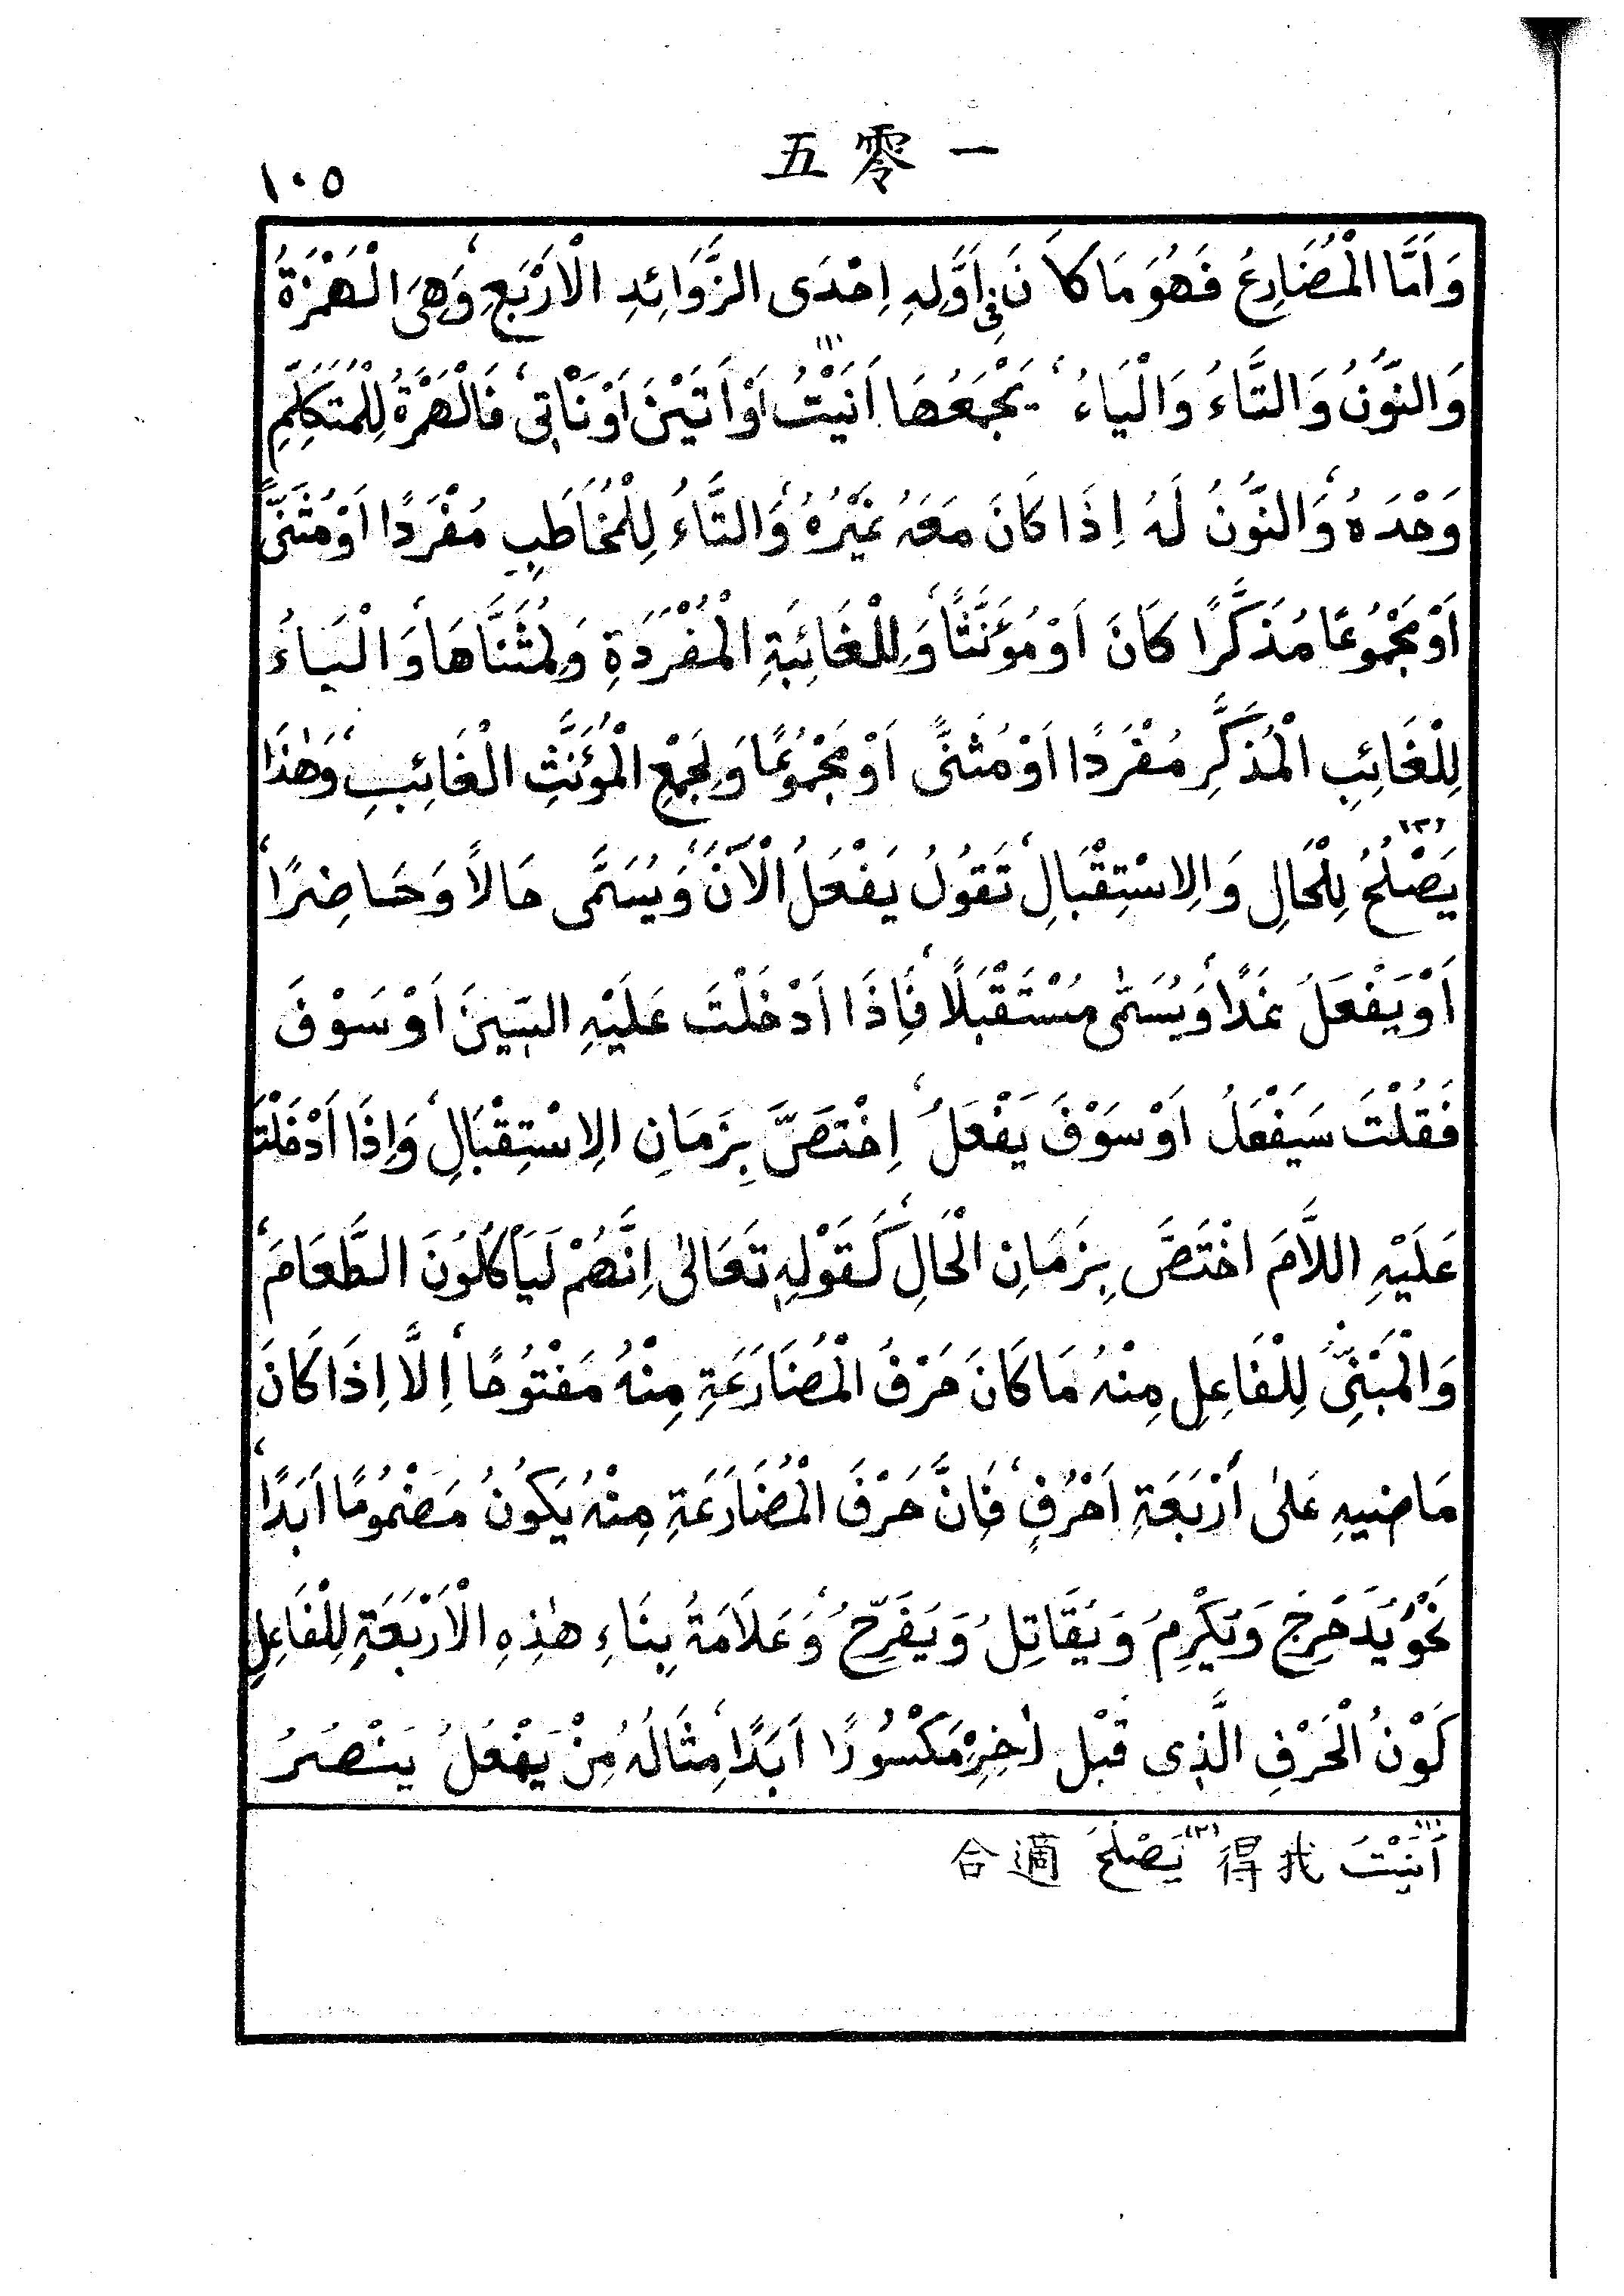 一零五
١٠٥
وَاَمَّا الْمُضَارِعُ فَهُوَ مَا كَا نَ فِى اَوَّلِهِ اِحْدَى الزَّوَائِدِ الْاَرْبَعِ، وَهِىَ الْهَمْزَةُ
وَالنُّوْنُ وَالتَّاءُ وَالْيَاءُ، يَجْمَعُهَا اَنَيْتُ (١) اَوْ اَتَيْنَ اَوْ نَاْتِى، فَالْهَمْزَةُ لِلْمُتَكَلِّمِ
وَحْدَهُ، وَالنُّوْنُ لَهُ اِذَا كَانَ مَعَهُ غَيْرُهُ، وَالتَّاءُ لِلْمُخَاطَبِ مُفْرَدًا اَوْ مُثَنًّى
اَوْ مَجْمُوْعًا مُذَكَّرًا كَانَ اَوْ مُؤَنَّثًا، وَلِلْغَائِبَةِ الْمُفْرَدَةِ وَلِمُثَنَّاهَا، وَالْيَاءُ
لِلْغَائِبِ الْمُذَكَّرِ مُفْرَدًا اَوْ مُثَنًّى اَوْ مَجْمُوْعًا وَلِجَمْعِ الْمُؤَنَّثِ الْغَائِبِ، وَهٰذَا
يَصْلُحُ (٢) لِلْحَالِ وَالِاسْتِقْبَالِ، تَقُوْلُ يَفْعَلُ الْآنَ، وَيُسَمَّى حَالاً وَحَاضِرًا،
اَوْ يَفْعَلُ غَدًا، وَيُسَمّٰى مُسْتَقْبَلًا، فَاِذَا اَدْخَلْتَ عَلَيْهِ السِّيْنَ اَوْ سَوْفَ
فَقُلْتَ سَيَفْعَلُ اَوْ سَوْفَ يَفْعَلُ، اِخْتَصَّ بِزَمَانِ الِاسْتِقْبَالِ، وَاِذَا اَدْخَلْتَ
عَلَيْهِ اللاَّمَ اخْتَصَّ بِزَمَانِ الْحَالِ، كَقَوْلِهِ تَعَالٰى اِنَّهُمْ لَيَاْكُلُوْنَ الطَّعَامَ،
وَالْمَبْنِىُّ لِلْفَاعِلِ مِنْهُ مَا كَانَ حَرْفُ الْمُضَارَعَةِ مِنْهُ مَفْتُوْحًا، اِلَّا اِذَا كَانَ
مَاضِيْهِ عَلٰى اَرْبَعَةِ اَحْرُفٍ، فَاِنَّ حَرْفَ الْمُضَارَعَةِ مِنْهُ يَكُوْنُ مَضْمُوْمًا اَبَدًا،
نَحْوُ يُدَحْرِجُ وَيُكْرِمُ وَيُقَاتِلُ وَيُفَرِّحُ، وَعَلَامَةُ بِنَاءِ هٰذِهِ الْاَرْبَعَةِ لِلْفَاعِلِ
كَوْنُ الْحَرْفِ الَّذِى قَبْلَ اٰخِرِهِ مَكْسُوْرًا اَبَدًا، مِثَالُهُ مِنْ يَفْعَلُ يَنْصُرُ
(١) اَنَيْتُ 我得 (٢) يَصْلُحُ 適合